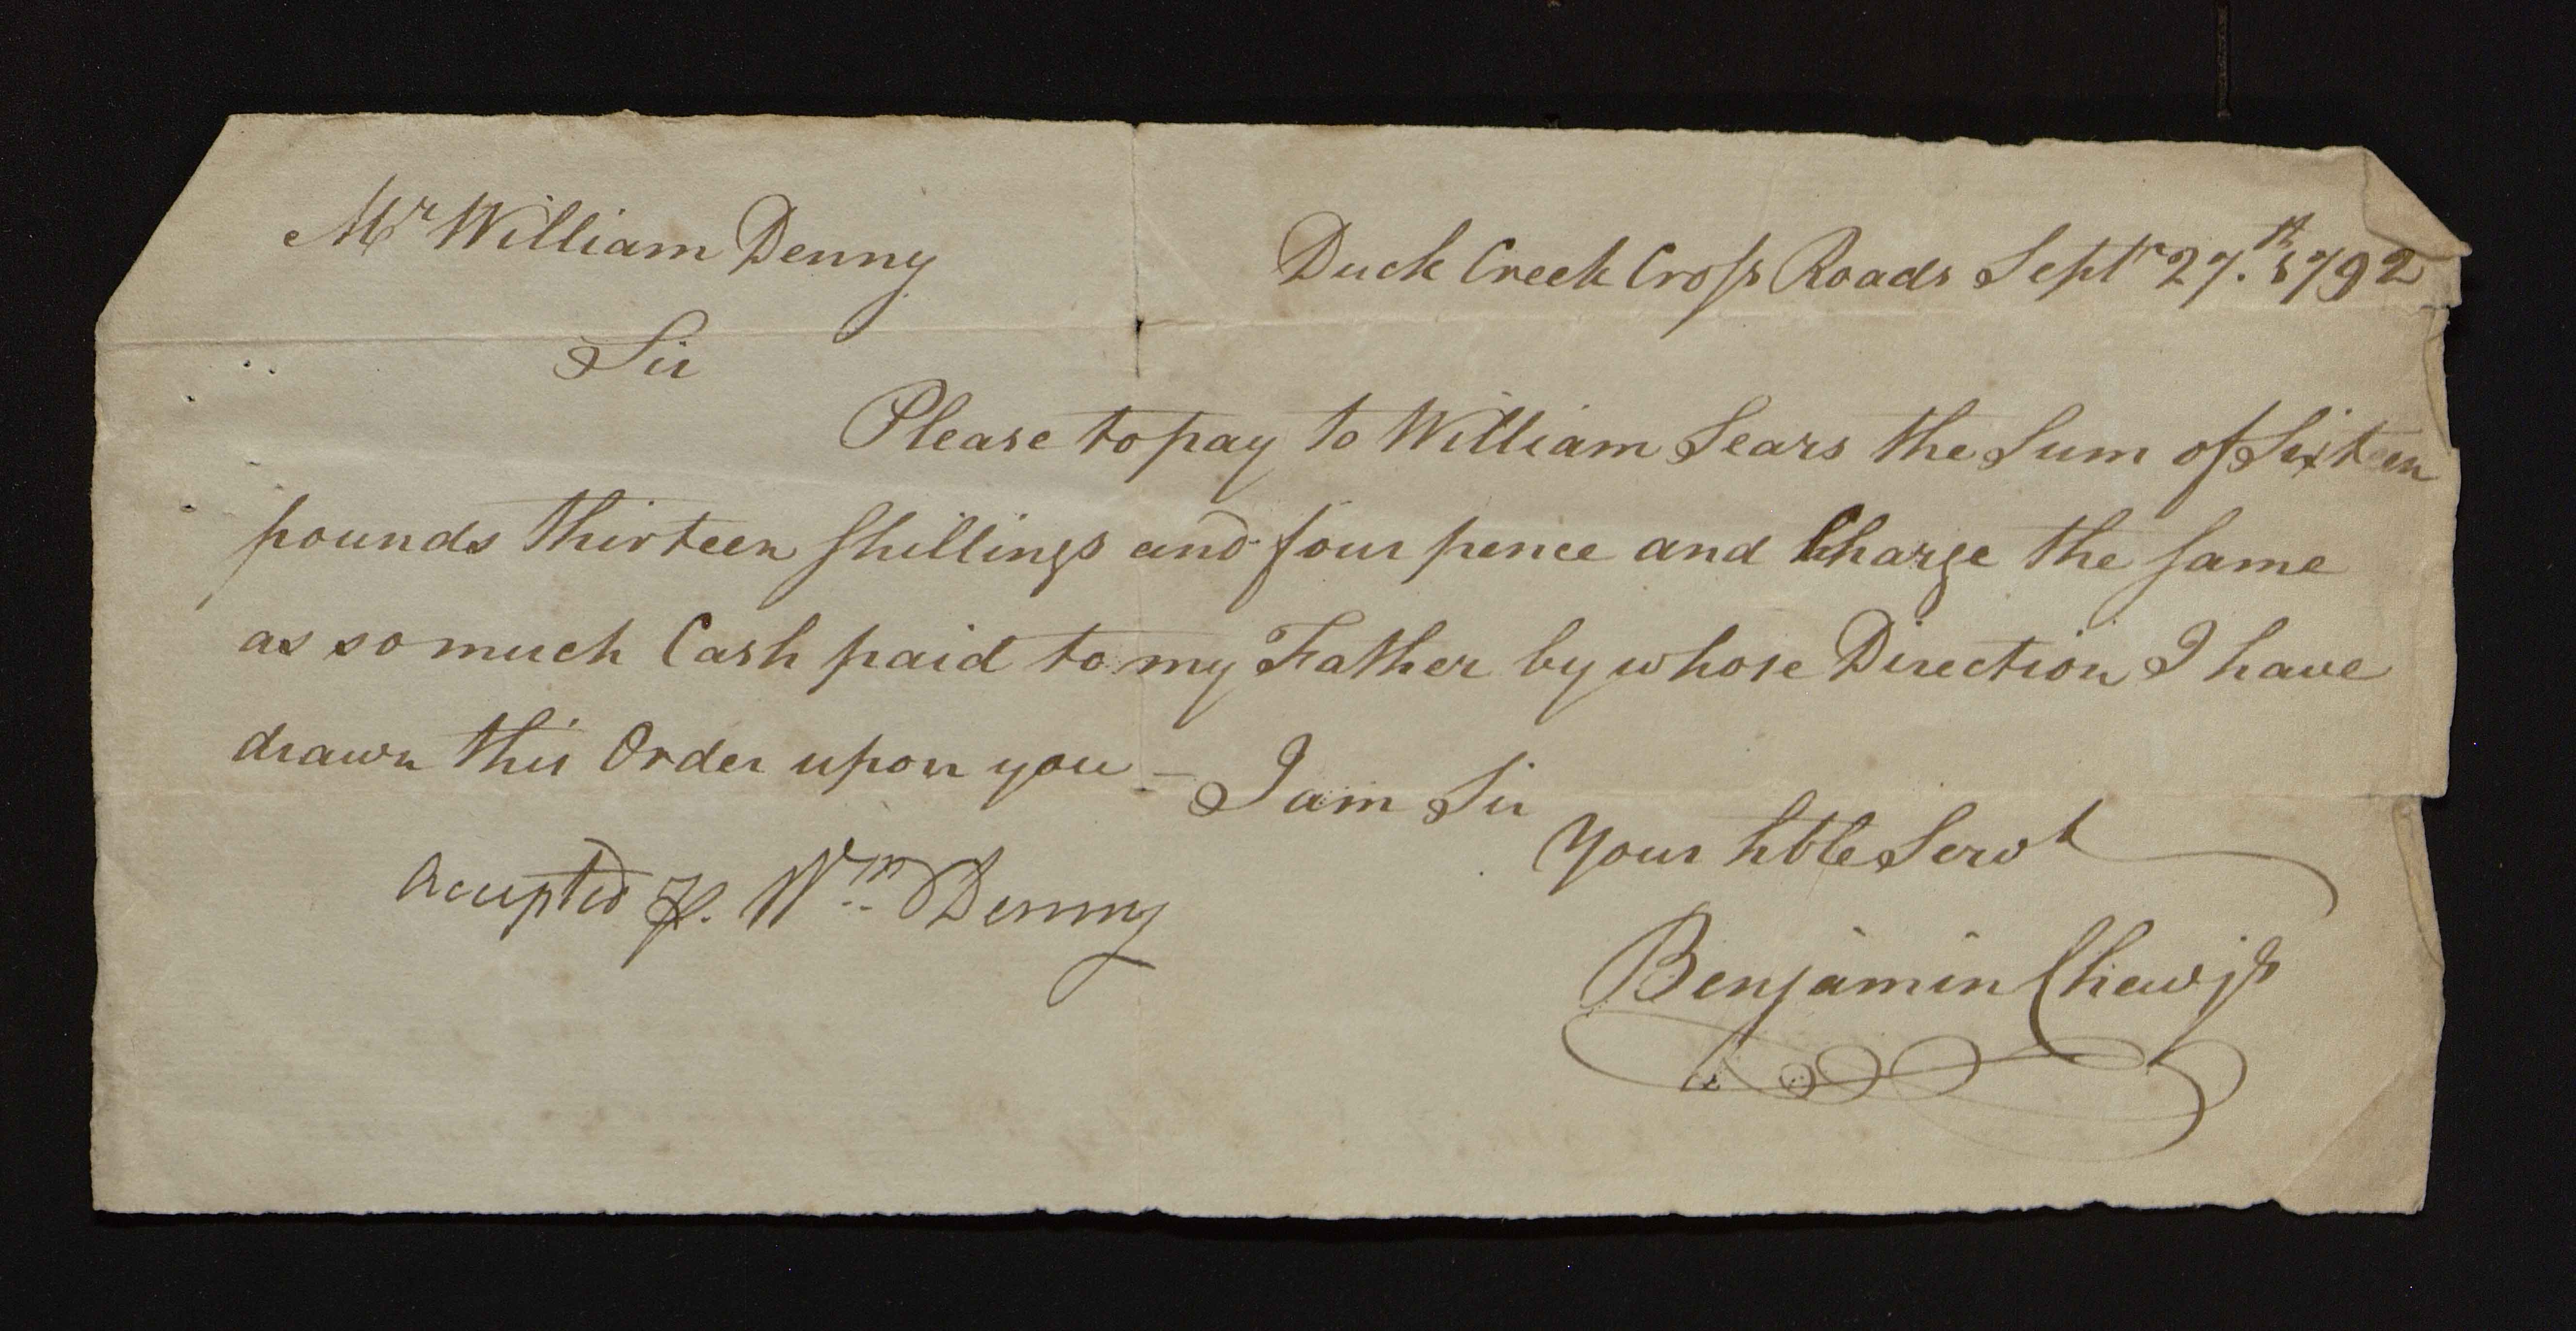 Mr William Denny
Duck Creek Cross Roads Septr 27.th 1792
Sir
Please to pay to William Sears the Sum of Sixteen
pounds thirteen Shillings and four pence and Charge the Same
as so much Cash paid to my Father by whose Direction I have
drawn this Order upon you – I am Sir
Your hble Servt
Accepted p. Wm Denny
Benjamin Chew jr